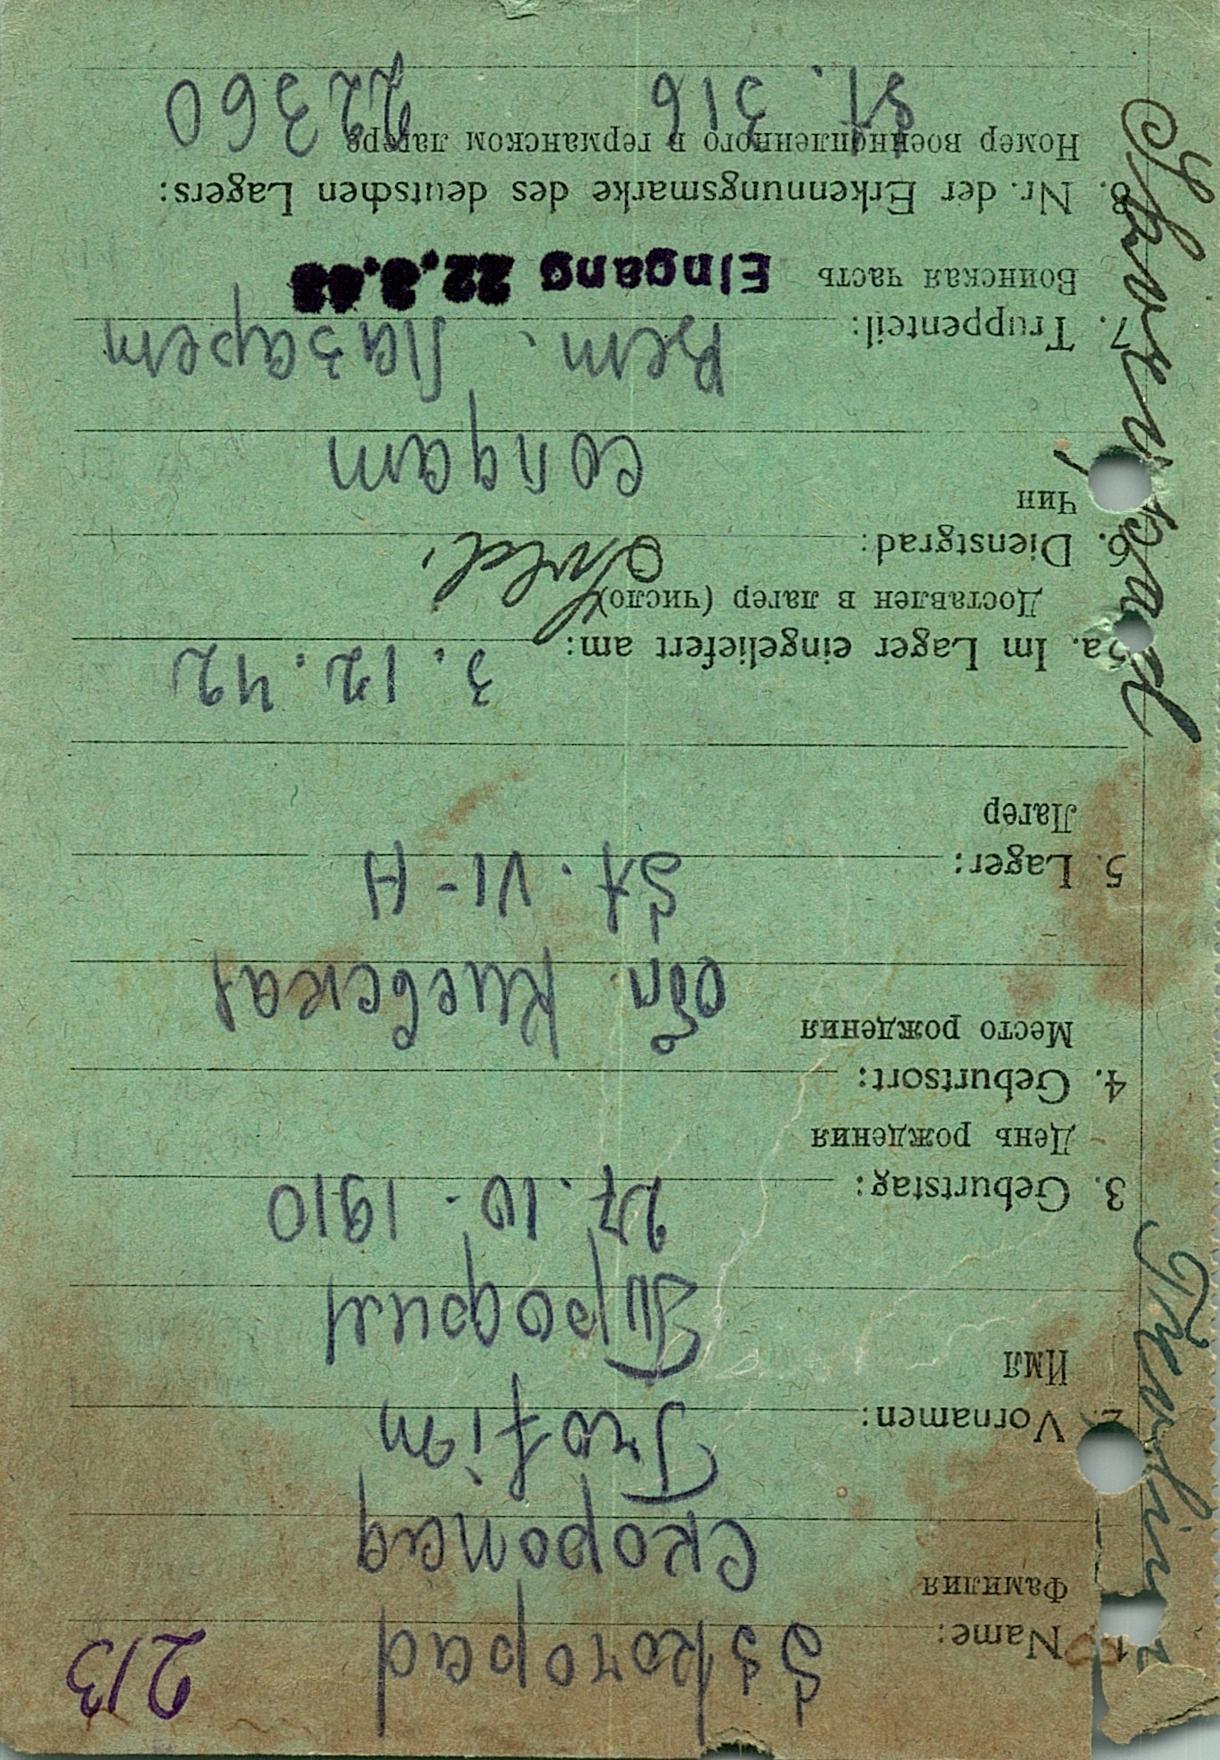 213
1. Name: Sskoropad
Фамилия скоропад
2. Vornamen: Trofim
Имя
3. Geburtstag: 27.10.1910
День рождения
4. Geburtsort:
Место рождения обл Киевская
5. Lager: St. VI-A
Лагер
5a. Im Lager eingeliefert am: 3.12.42
Доставлен в лагер (число)
6. Dienstgrad: Sold.
Чин солдат
7. Truppenteil: Вет. Лазарет
Воинская часть Eingang 22.3.43
8. Nr. der Erkennungsmarke des deutschen Lagers:
Номер военнопленного в германском лагере
St. 316 22360